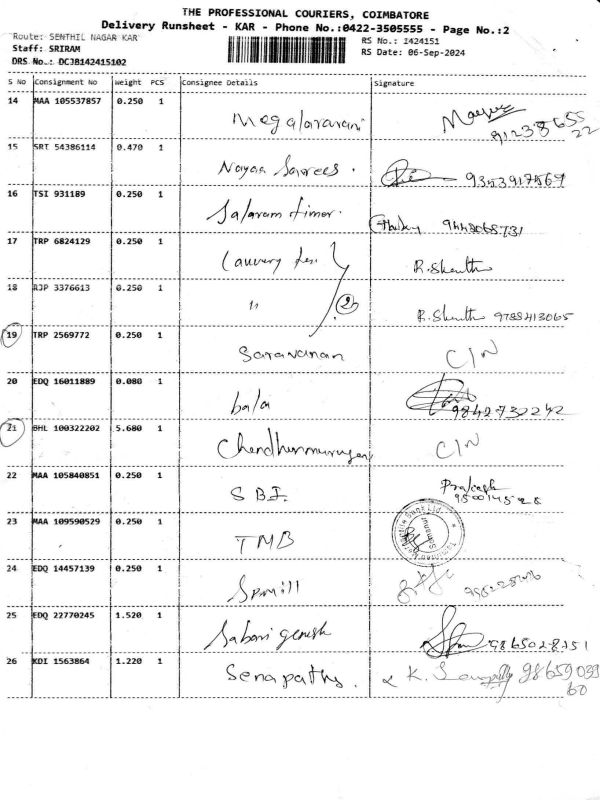 THE PROFESSIONAL COURIERS, COIMBATORE
Delivery Runsheet - KAR - Phone No.:0422-3505555 - Page No.:2
Route: SENTHIL NAGAR KAR
Staff: SRIRAM
DRS No.: DCJB142415102
RS No.: I424151
RS Date: 06-Sep-2024
S No Consignment No Weight PCS Consignee Details Signature
14 MAA 105537857 0.250 1 Megalaravani
15 SRT 54386114 0.470 1 Nayaa Sarees. 9353917567
16 TSI 931189 0.250 1 Salaram timer.
17 TRP 6824129 0.250 1 Cauvery R.Shanth
18 RJP 3376613 0.250 1 " 2 R.Shanth 9788413065
19 TRP 2569772 0.250 1 Saravanan C/N
20 EDQ 16011889 0.080 1 bala 9842732242
21 BHL 100322202 5.680 1 Chendhurmurugan C/N
22 MAA 105840851 0.250 1 SBI. Prakash
23 MAA 109590529 0.250 1 TMB
24 EDQ 14457139 0.250 1 Spmill
25 EDQ 22770245 1.520 1 Sabari genesh 9865028351
26 KDI 1563864 1.220 1 Senapathy. K. 98659039
60